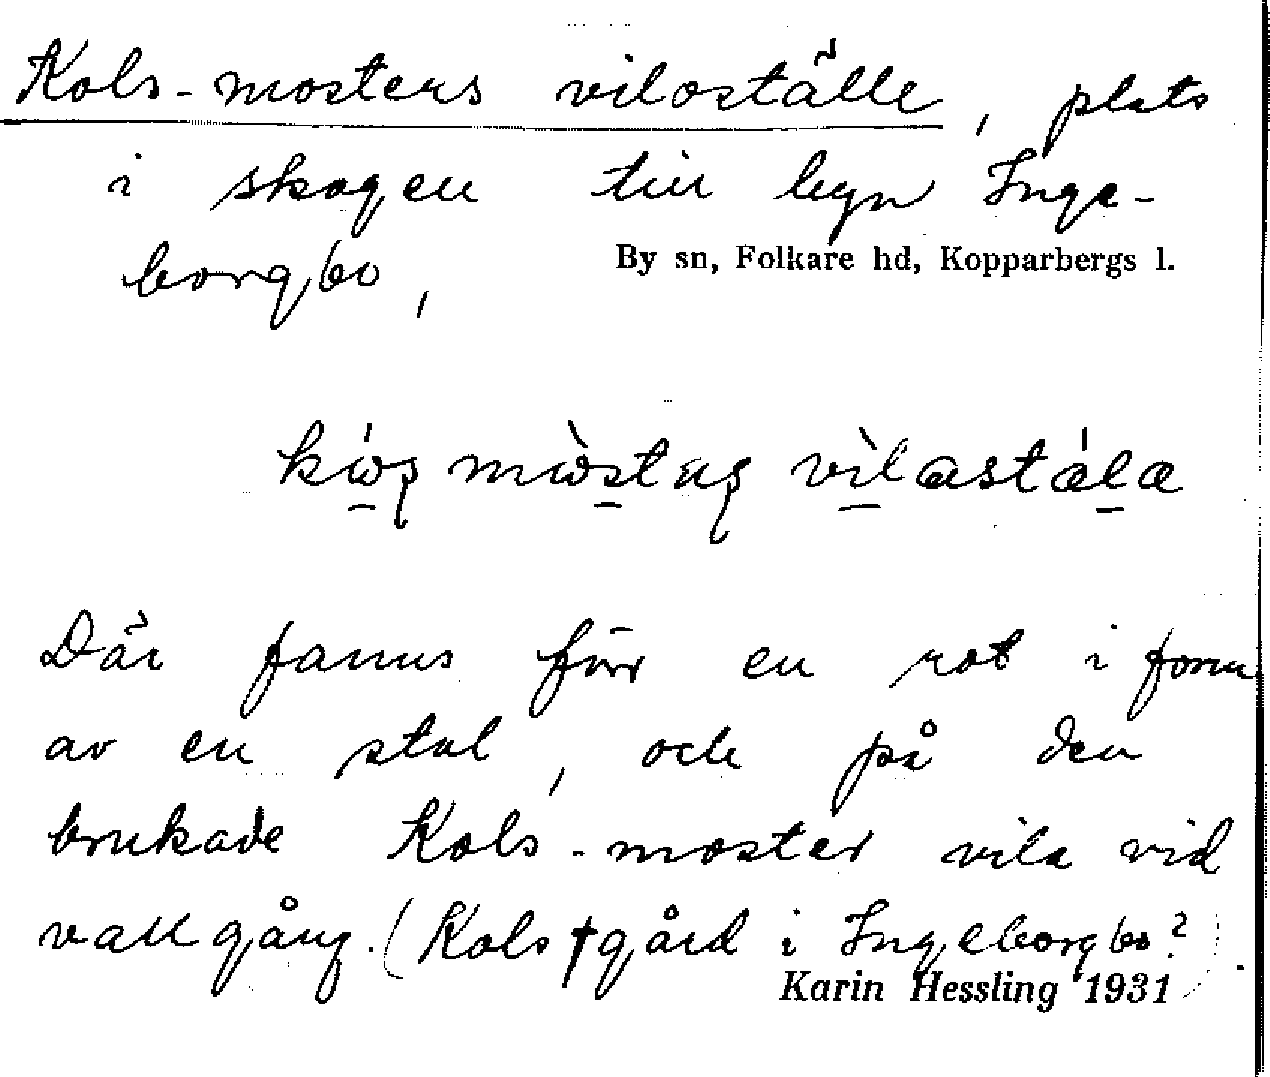 Kols-mosters viloställe, plats
i skogen till byn Inge-
borgbo,
By sn, Folkare hd, Kopparbergs l.
Där fanns förr en rot i form
av en stol, och på den
brukade Kols-moster vila vid
vallgång. (Kols † gård i Ingeborgbo?).
Karin Hessling 1931